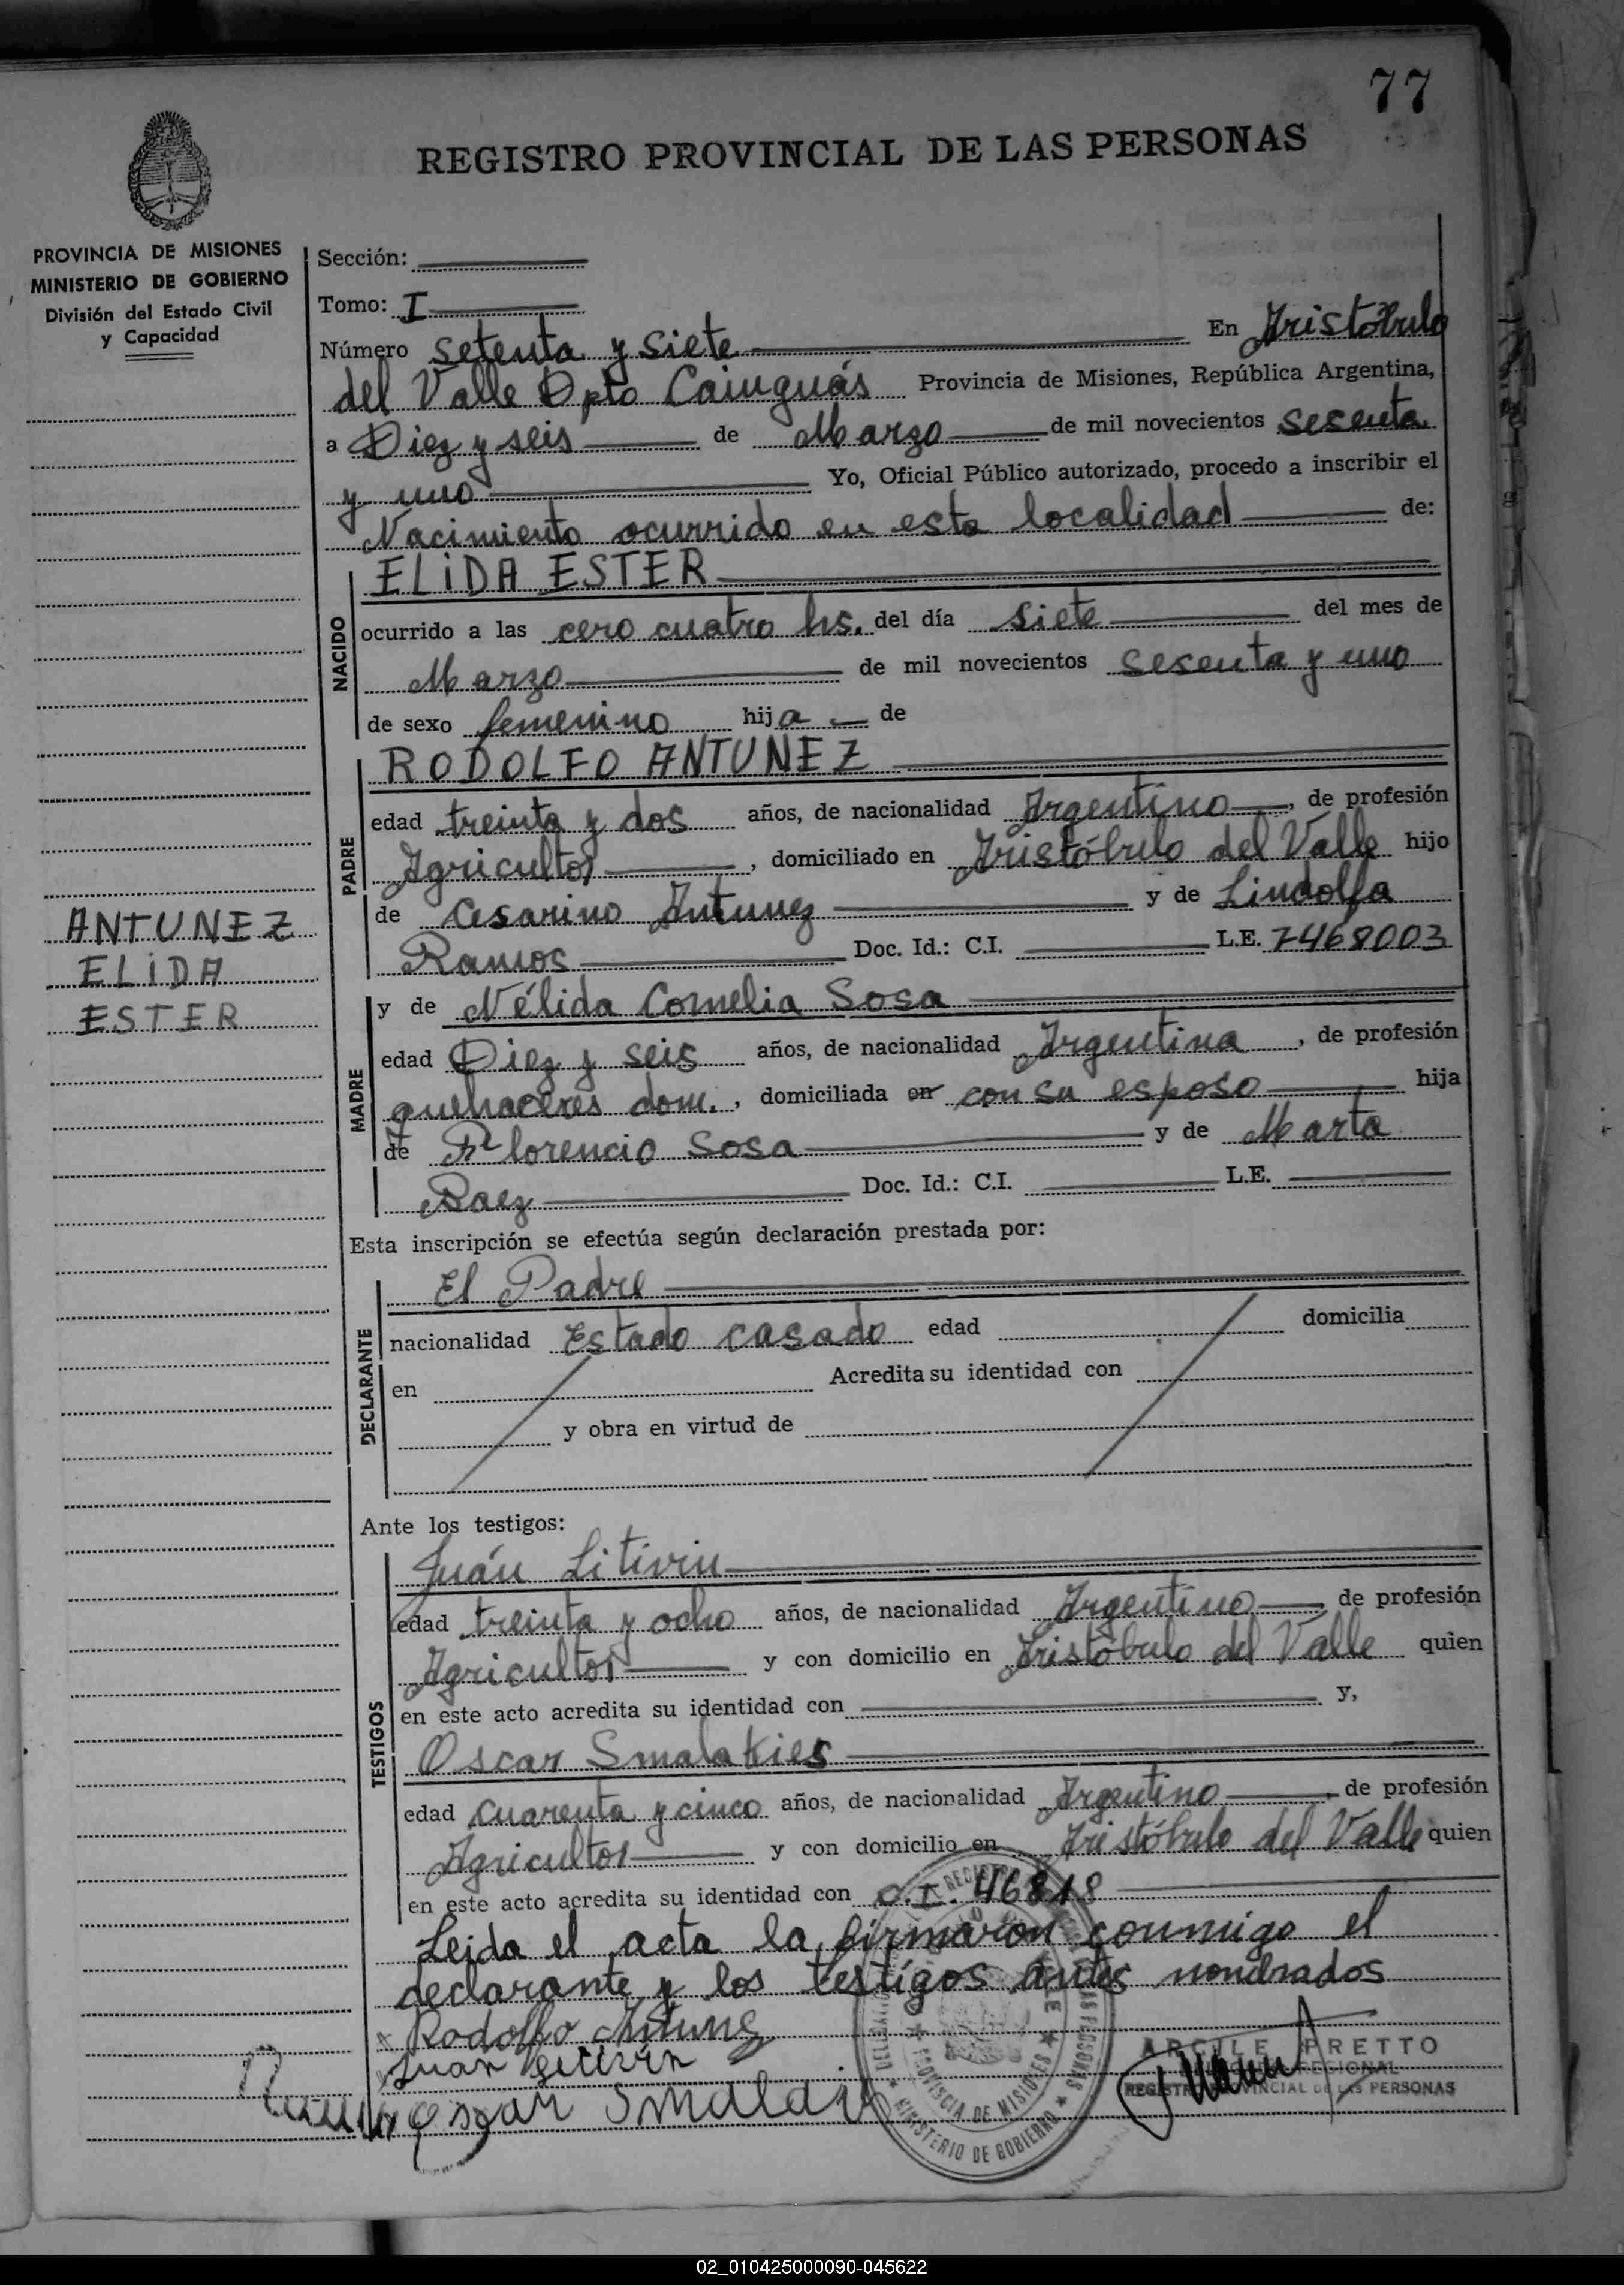 77
REGISTRO PROVINCIAL DE LAS PERSONAS
PROVINCIA DE MISIONES
MINISTERIO DE GOBIERNO
División del Estado Civil
y Capacidad
Sección:
Tomo: I
Número setenta y siete En Aristóbulo
del Valle Dpto Cainguás Provincia de Misiones, República Argentina,
a Diez y seis de Marzo de mil novecientos sesenta
y uno Yo, Oficial Público autorizado, procedo a inscribir el
Nacimiento ocurrido en esta localidad de:
NACIDO
ELIDA ESTER
ocurrido a las cero cuatro hs. del día siete del mes de
Marzo de mil novecientos sesenta y uno
de sexo femenino hija de
PADRE
RODOLFO ANTUNEZ
edad treinta y dos años, de nacionalidad Argentino, de profesión
Agricultor, domiciliado en Aristóbulo del Valle hijo
de Cesarino Antunez y de Lindolfa
Ramos Doc. Id.: C.I. L.E. 7468003
ANTUNEZ
ELIDA
ESTER
MADRE
y de Nélida Cornelia Sosa
edad Diez y seis años, de nacionalidad Argentina, de profesión
quehaceres dom., domiciliada en con su esposo hija
de Florencio Sosa y de Marta
Baez Doc. Id.: C.I. L.E.
Esta inscripción se efectúa según declaración prestada por:
DECLARANTE
El Padre
nacionalidad Estado casado edad domicilia
en Acredita su identidad con
y obra en virtud de
Ante los testigos:
TESTIGOS
Juán Litivin
edad treinta y ocho años, de nacionalidad Argentino, de profesión
Agricultor y con domicilio en Aristóbulo del Valle quien
en este acto acredita su identidad con y,
Oscar Smalakies
edad cuarenta y cinco años, de nacionalidad Argentino, de profesión
Agricultor y con domicilio en Aristóbulo del Valle quien
en este acto acredita su identidad con C.I. 46818
Leida el acta la firmaron conmigo el
declarante y los testigos antes nombrados
Rodolfo Antunez
Juan
Oscar
ARGILE PRETTO
REGIONAL
REGISTRO PROVINCIAL DE LAS PERSONAS
PROVINCIA DE MISIONES
MINISTERIO DE GOBIERNO
02_010425000090-045622